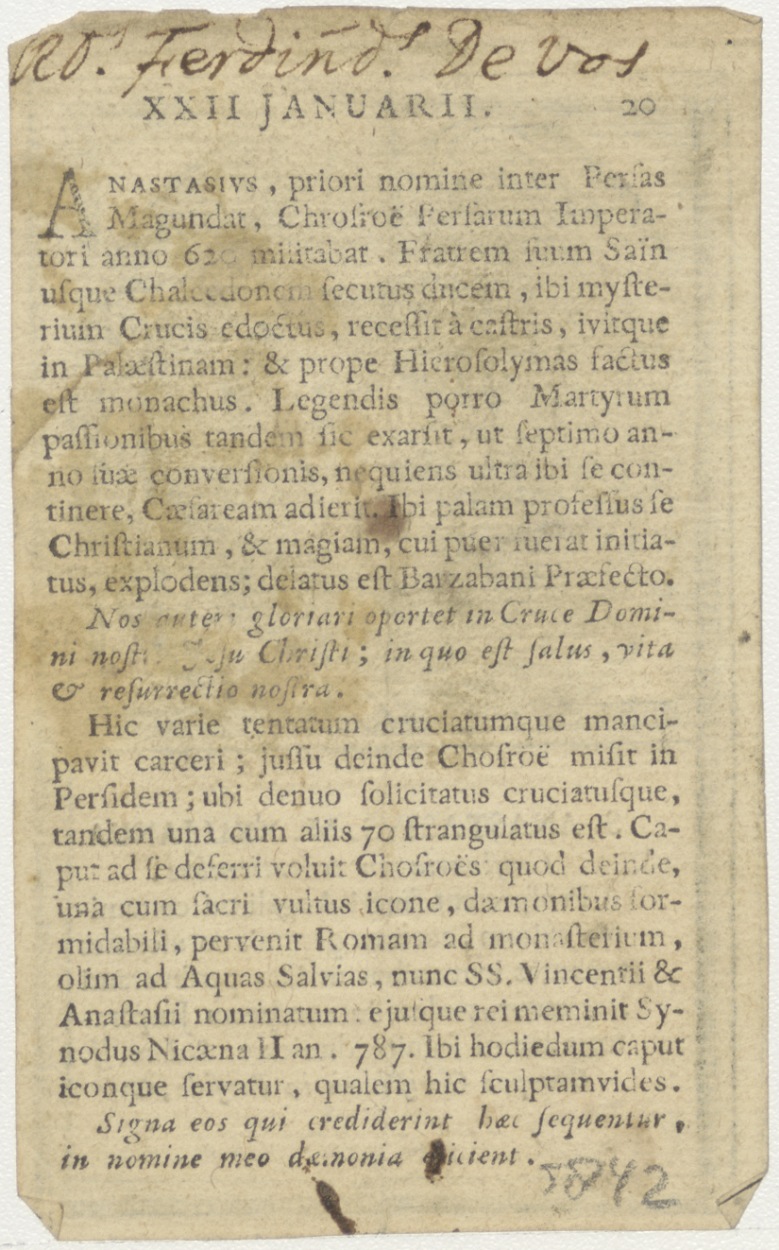 RD.s Ferdiñd.s De Vos
XXII JANUARII. 20
ANASTASIVS, priori nomine inter Persas
Magundat, Chroſroë Perſarum Impera-
tori anno 620 militabat. Fratrem ſuum Saïn
uſque Chalcedonem ſecutus ducem, ibi myſte-
rium Crucis edoctus, receſſit à caſtris, ivitque
in Palæſtinam: & prope Hieroſolymas factus
eſt monachus. Legendis porro Martyrum
paſſionibus tandem ſic exarſit, ut ſeptimo an-
no ſuæ converſionis, nequiens ultra ibi ſe con-
tinere, Cæſaream adierit. Ibi palam profeſſus ſe
Chriſtianum, & magiam, cui puer fuerat initia-
tus, explodens; delatus eſt Barzabani Præfecto.
Nos autem gloriari oportet in Cruce Domi-
ni noſt Jeſu Chriſti; in quo eſt ſalus, vita
& reſurrectio noſtra.
Hic varie tentatum cruciatumque manci-
pavit carceri; juſſu deinde Choſroë miſit in
Perſidem; ubi denuo ſolicitatus cruciatuſque,
tandem una cum aliis 70 ſtrangulatus eſt. Ca-
put ad ſe deferri voluit Choſroës: quod deinde,
una cum ſacri vultus icone, dæmonibus for-
midabili, pervenit Romam ad monaſterium,
olim ad Aquas Salvias, nunc SS. Vincentii &
Anaſtaſii nominatum: ejuſque rei meminit Sy-
nodus Nicæna II an. 787. Ibi hodiedum caput
iconque ſervatur, qualem hic ſculptamvides.
Signa eos qui crediderint hæc ſequentur,
in nomine meo dæmonia ejicient.